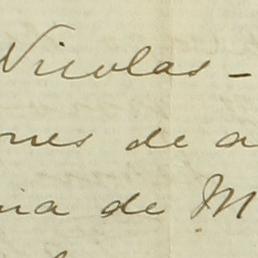 Nicolas -
ones de a
ia de M